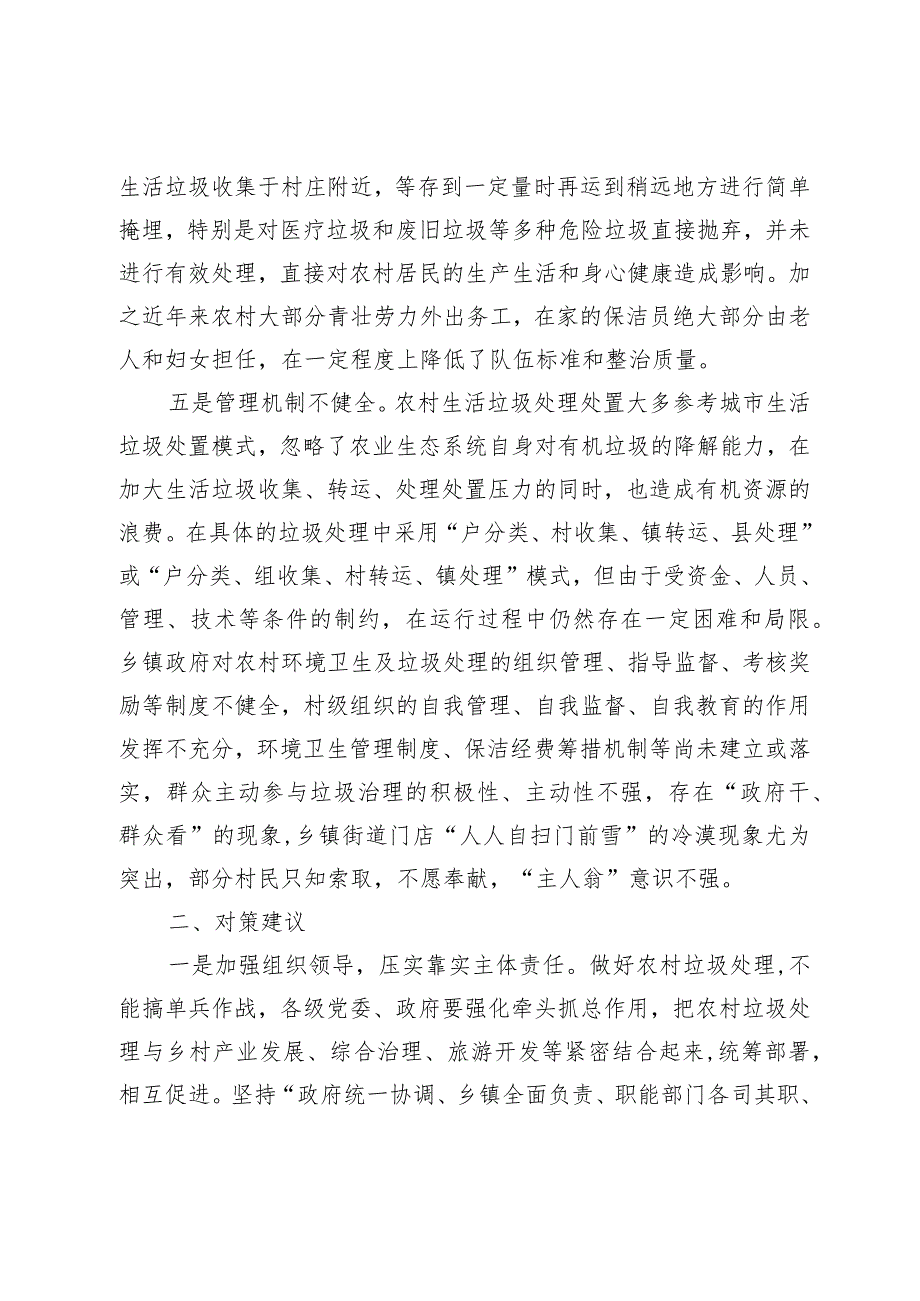 生活垃圾收集于村庄附近，等存到一定量时再运到稍远地方进行简单
掩埋，特别是对医疗垃圾和废旧垃圾等多种危险垃圾直接抛弃，并未
进行有效处理，直接对农村居民的生产生活和身心健康造成影响。加
之近年来农村大部分青壮劳力外出务工，在家的保洁员绝大部分由老
人和妇女担任，在一定程度上降低了队伍标准和整治质量。
五是管理机制不健全。农村生活垃圾处理处置大多参考城市生活
垃圾处置模式，忽略了农业生态系统自身对有机垃圾的降解能力，在
加大生活垃圾收集、转运、处理处置压力的同时，也造成有机资源的
浪费。在具体的垃圾处理中采用“户分类、村收集、镇转运、县处理”
或“户分类、组收集、村转运、镇处理”模式，但由于受资金、人员、
管理、技术等条件的制约，在运行过程中仍然存在一定困难和局限。
乡镇政府对农村环境卫生及垃圾处理的组织管理、指导监督、考核奖
励等制度不健全，村级组织的自我管理、自我监督、自我教育的作用
发挥不充分，环境卫生管理制度、保洁经费筹措机制等尚未建立或落
实，群众主动参与垃圾治理的积极性、主动性不强，存在“政府干、
群众看”的现象,乡镇街道门店“人人自扫门前雪”的冷漠现象尤为
突出，部分村民只知索取，不愿奉献，“主人翁”意识不强。
二、对策建议
一是加强组织领导，压实靠实主体责任。做好农村垃圾处理,不
能搞单兵作战，各级党委、政府要强化牵头抓总作用，把农村垃圾处
理与乡村产业发展、综合治理、旅游开发等紧密结合起来,统筹部署，
相互促进。坚持“政府统一协调、乡镇全面负责、职能部门各司其职、